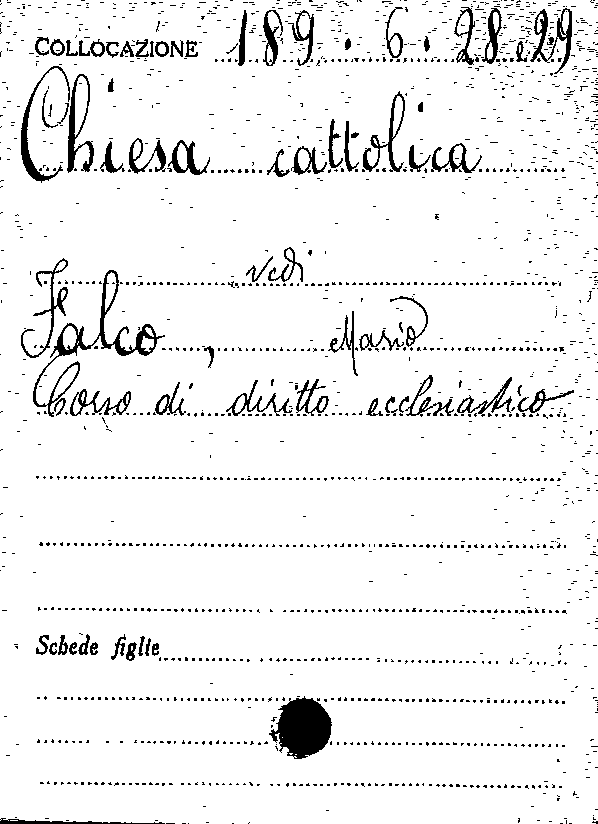 COLLOCAZIONE 189.6.28.29
Chiesa cattolica
vedi
Falco, Mario
Corso di diritto ecclesiastico
Schede figlie